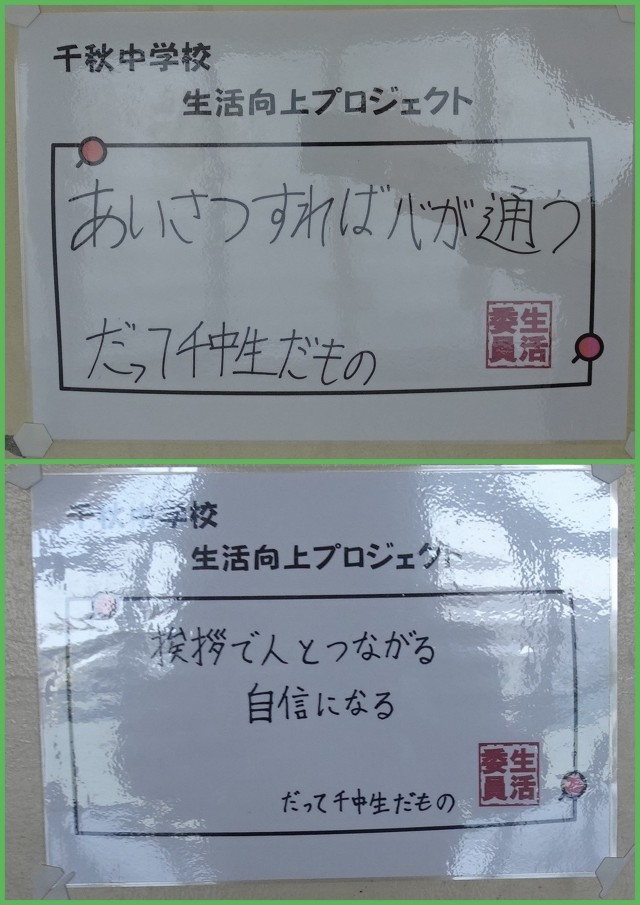 千秋中学校
生活向上プロジェクト
あいさつすれば心が通う
だって千中生だもの
生活
委員
千秋中学校
生活向上プロジェクト
挨拶で人とつながる
自信になる
だって千中生だもの
生活
委員